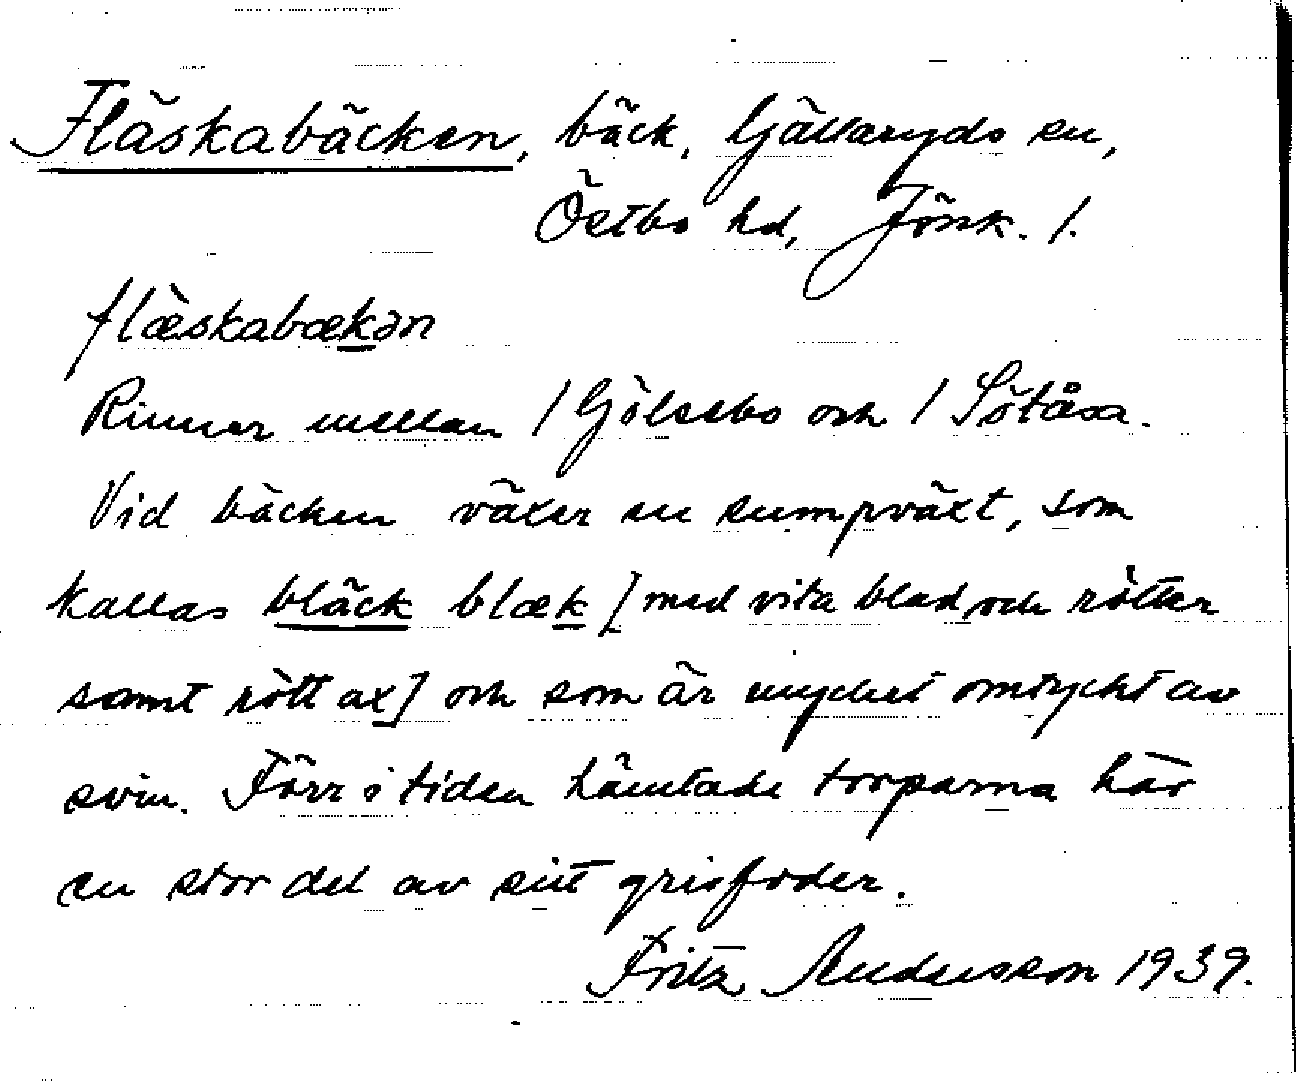 Fläskabäcken, bäck, Gällaryds sn,
Östbo hd, Jönk. l.
flæ̀skabækən
Rinner mellan / Gölsebo och / Sötåsa.
Vid bäcken växer en sumpväxt, som
kallas bläck blæk [med vita blad och rötter
samt rött ax] och som är mycket omtyckt av
svin. Förr i tiden hämtade torparna här
en stor del av sitt grisfoder.
Fritz Andersson 1939.